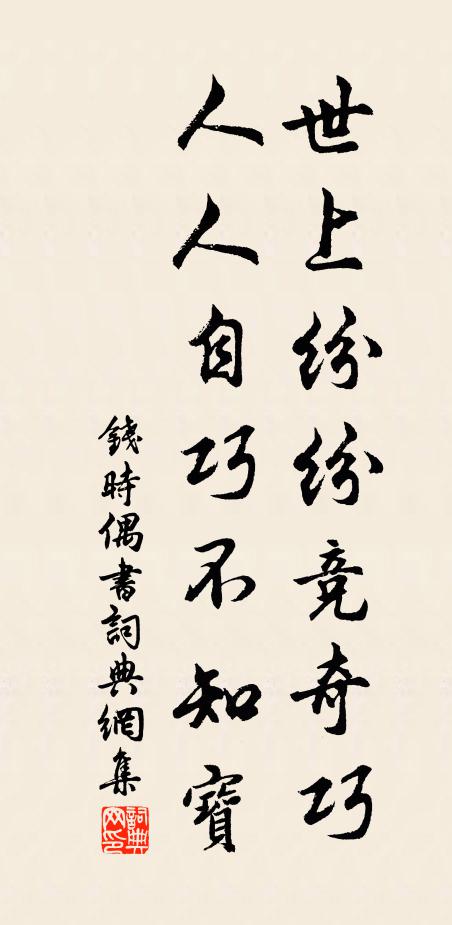 世上紛紛競奇巧
人人自巧不知寶
錢時偶書詞典網集
詞典網印